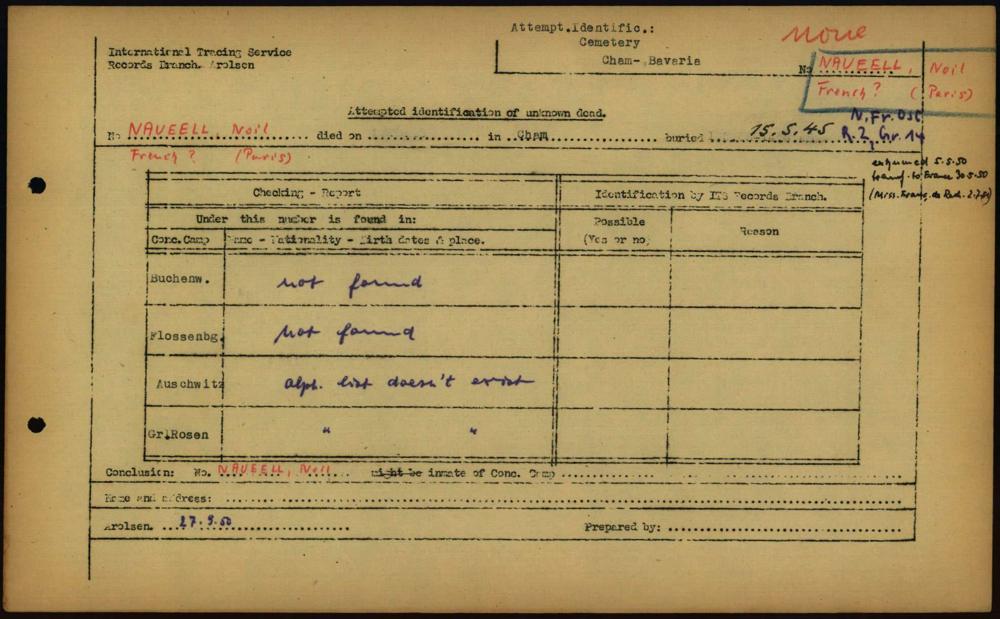 Attempt.Identific.:
Cemetery
Cham- Bavaria
None
International Tracing Service
Records Branch. Arolsen
No NAVEELL, Noil
French? (Paris)
Attempted identification of unknown dead.
No NAVEELL, Noil died on in Cham buried 15.5.45
N.Fr.Ost
R.2, Gr. 14
French? (Paris)
exhumed 5.5.50
transf. to France 30.5.50
(Miss. Franç. de Rad. 2.7.51)
Checking - Report
Identification by ITS Records Branch.
Under this number is found in:
Possible
(Yes or no)
Reason
Conc.Camp
Name - Nationality - Birth dates & place.
Buchenw.
not found
Flossenbg.
Not found
Auschwitz
alph. list doesn't exist
Gr.Rosen
" "
Conclusion: No. NAVEELL, Noil might be inmate of Conc. Camp
Name and address:
Arolsen. 27.9.50
Prepared by: